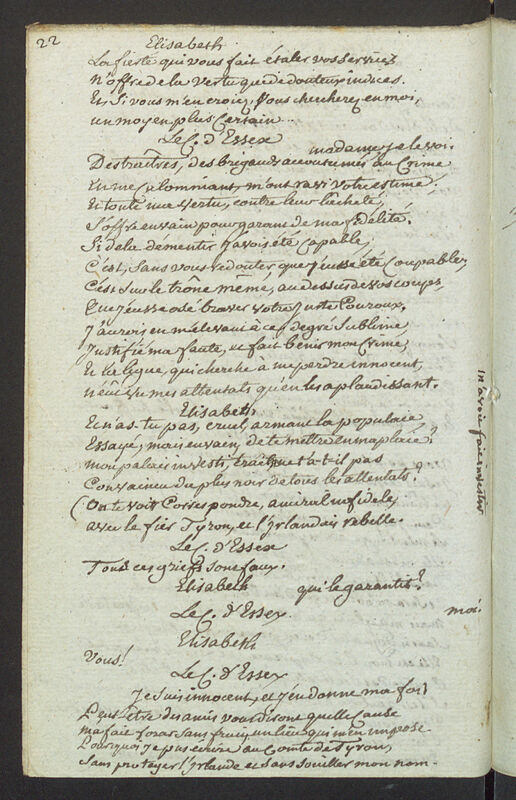 22
Elisabeth
La fierté qui vous fait étaler vos services
n'offre de la vertu que de douteux indices.
Et si vous m'en croiez, vous chercherez en moi,
un moyen plus certain...
Le C. d'Essex
madame, je le voi.
Des traîtres, des brigands accoutumés au Crime
en me calomniant, m'ont ravi votre estime.
En toute ma vertu, contre leur lacheté,
s'offre en vain pour garant de ma fidélité.
Si de la dementir j'avois été capable,
C'est, sans vous redouter que j'eusse été Coupable,
C'est sur le trone même, au dessus de vos coups,
Que j'eusse osé braver votre juste Couroux.
J'aurois en m'elevant à ce degré Sublime
justifié ma faute, et fait benir mon Crime;
Et la ligue, qui cherche à me perdre innocent,
n'eût vu mes attentats qu'en les aplaudissant.
Elisabeth
Et n'as-tu pas, cruel, armant la populace
Essayé, mais en vain, de te mettre en ma place?
mon palais investi, ne t'a-t-il pas
Convaincu du plus noir de tous les attentats?
On te voit Correspondre, amiral infidele,
avec le fier Tyron, et l'Irlandais rebelle.
Le C. d'Essex
Tous ces griefs sont faux.
Elisabeth
qui le garantit?
Le C. d'Essex
moi.
Elisabeth
Vous!
Le C. d'Essex
Je suis innocent, et j'en donne ma foi
Peut-être des amis vous diront quelle Cause
ma fait forcer sans fruit, un lieu qui m'en impose
Pourquoi je pus écrire au Comte de Tyron,
sans protéger l'Irlande et sans souiller mon nom.
m'avoir fait investir